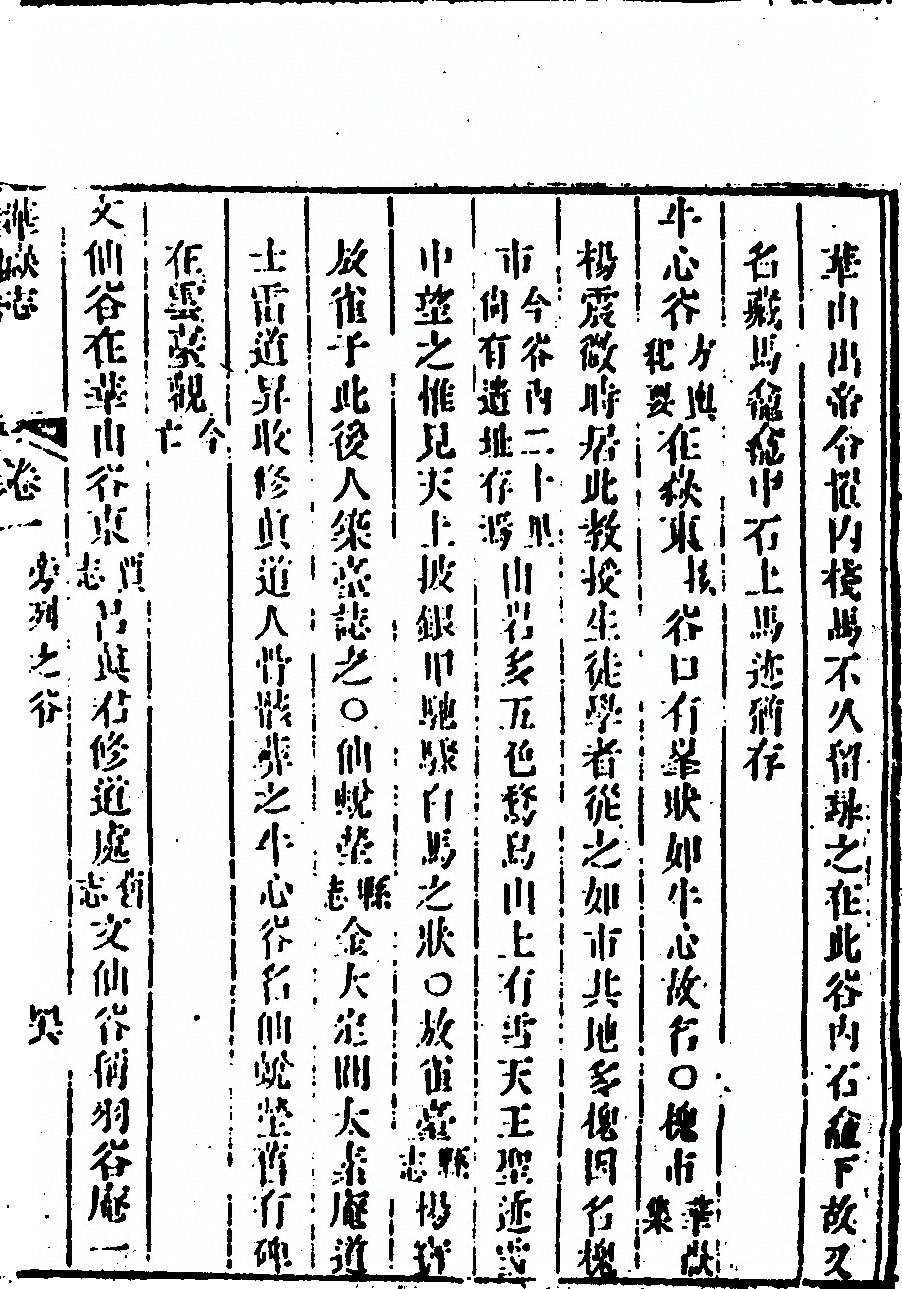 華山出帝令懼內棧馬不久留詠之在此谷內石龕下故又
名藏馬龕龕中石上馬迹猶存
牛心谷方輿紀要在嶽東谷口有峯狀如牛心故名〇槐市華嶽集
楊震微時居此教授生徒學者從之如市其地多槐因名槐
市今谷內二十里尚有遺址存焉山岩多五色鶩鳥山上有雪天王聖迹雪
中望之惟見天上披銀甲馳驟白馬之狀〇放雀臺縣志楊寶
放雀于此後人築臺誌之〇仙蛻塋縣志金大定間太素庵道
士雷道昇收修真道人骨骸葬之牛心谷名仙蛻塋舊有碑
在雲臺觀今亡
文仙谷在華山谷東賈志呂真君修道處舊志文仙谷俏羽谷庵一
華嶽志 卷一 旁列之谷 吳